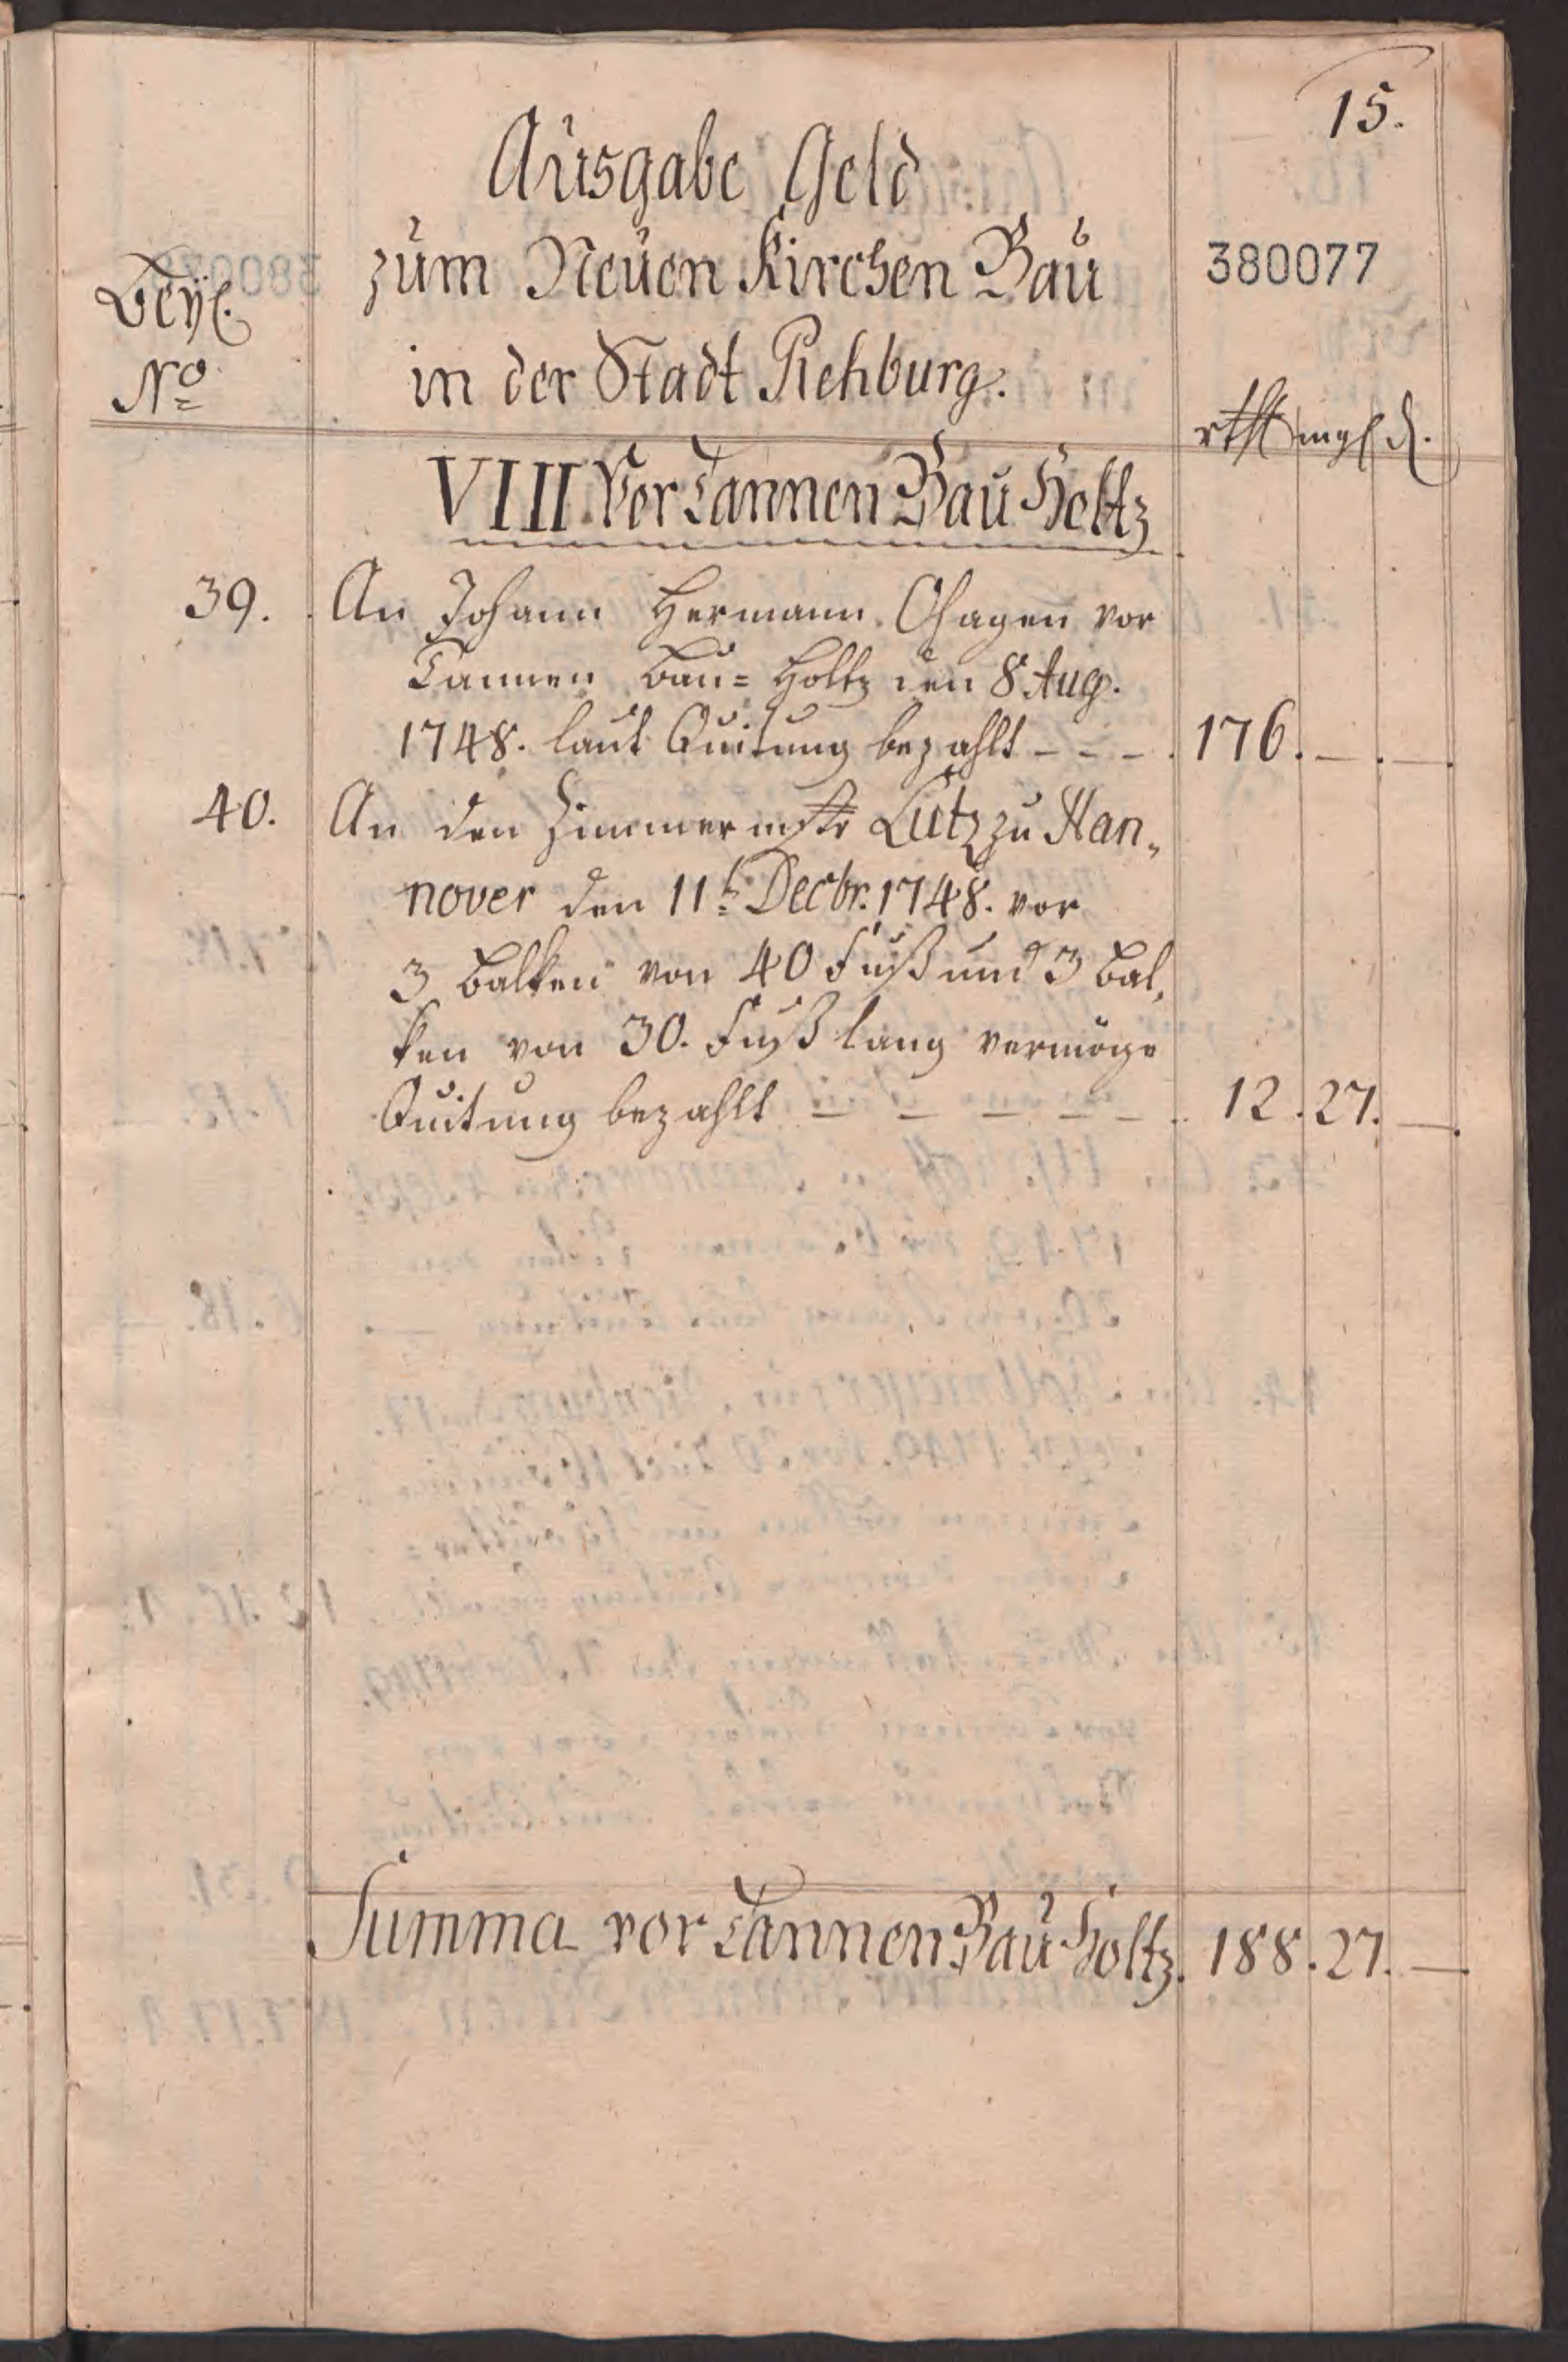 15.
Ausgabe Geld
zum Neuen Kirchen Bau
380077
Beyl.
No
in der Stadt Rehburg.
rthl mgl d.
VIII. Vor Tannen Bau Holtz
39. An Johann Hermann Ohagen vor
Tannen Bau= Holtz den 8 Aug.
1748. laut Quitung bezahlt - - - 176. — . — .
40. An den Zimmer mstr Lutz zu Han„
nover den 11t Decbr. 1748. vor
3 Balken von 40 Fuß und 3 Bal„
ken von 30. Fuß lang vermöge
Quitung bezahlt — — — — — 12. 27. —.
Summa vor Tannen Bau Holtz. 188. 27. —.